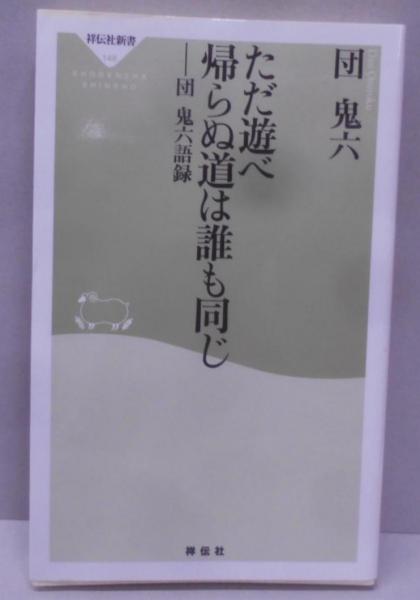 祥伝社新書
148
SHODENSHA
SHINSHO
団 鬼六
Dan Oniroku
ただ遊べ
帰らぬ道は誰も同じ
──団 鬼六語録
祥伝社